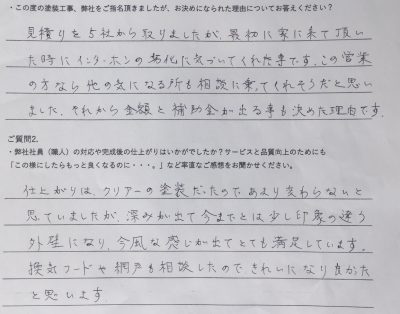 ・この度の塗装工事、弊社をご指名頂きましたが、お決めになられた理由についてお答えください?
見積りを5社から取りましたが、最初に家に来て頂い
た時にインターホンの劣化に気づいてくれた事です。この営業
の方なら他の気になる所も相談に乗ってくれそうだと思い
ました。それから金額と補助金が出る事も決めた理由です。
ご質問2.
・弊社社員(職人)の対応や完成後の仕上がりはいかがでしたか?サービスと品質向上のためにも
「この様にしたらもっと良くなるのに・・・。」など率直なご感想をお聞かせください。
仕上がりは、クリアーの塗装だったのであまり変わらないと
思っていましたが、深みが出て今までとは少し印象の違う
外壁になり、今風な感じが出てとても満足しています。
換気フードや網戸も相談したのできれいになり良かった
と思います。